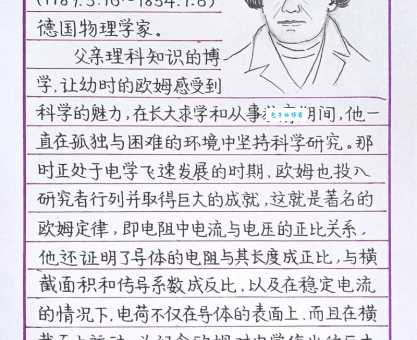 (1789.3.16~1854.7.6)
德国物理学家。
父亲理科知识的博
学,让幼时的欧姆感受到
科学的魅力,在长大求学和从事教育期间,他一
直在孤独与困难的环境中坚持科学研究。那
时正处于电学飞速发展的时期,欧姆也投入
研究者行列并取得巨大的成就,这就是著名的
欧姆定律,即电阻中电流与电压的正比关系。
他还证明了导体的电阻与其长度成正比,与横
截面积和传导系数成反比,以及在稳定电流
的情况下,电荷不仅在导体的表面上,而且在横